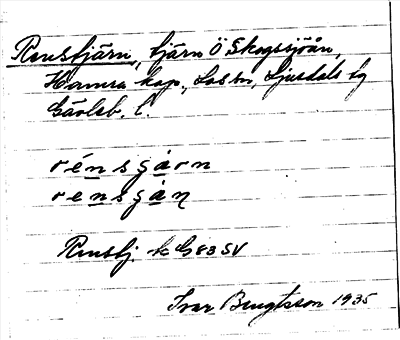 Rensbjärn, tjärn Ö Skogssjöån,
Hamra kap., Los sn, Ljusdals tg
Gävleb. l.
rénsgårn
rensgån
Rensbj. k G83SV
Ivar Bengtsson 1935